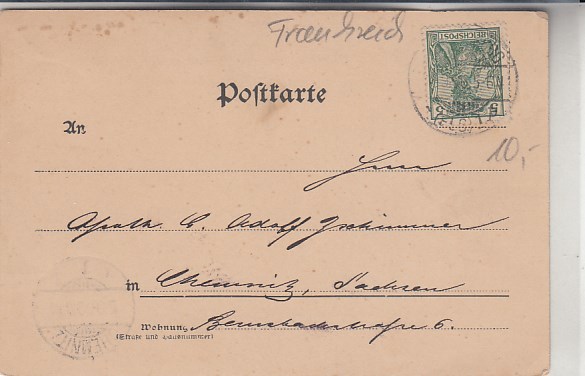 Frankreich
REICHSPOST
5 5
Postkarte
An
10,-
Herrn
Apoth. C. Adolf Zschimmer
in Chemnitz, Sachsen
Wohnung Bernsbachstraße 6.
(Straße und Hausnummer)
CHEMNITZ